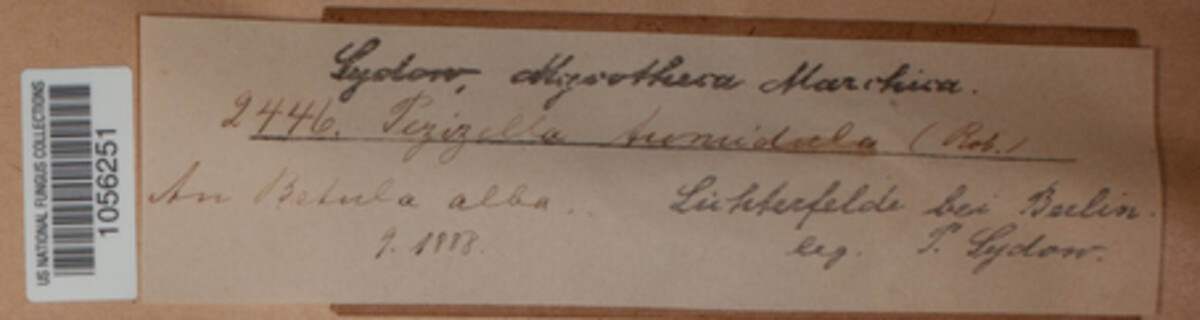 US NATIONAL FUNGUS COLLECTIONS
1056251
Sydow, Mycotheca Marchica.
2446. Pezizella tumidula (Rob.)
An Betula alba.
9. 1888.
Lichterfelde bei Berlin.
leg. P. Sydow.